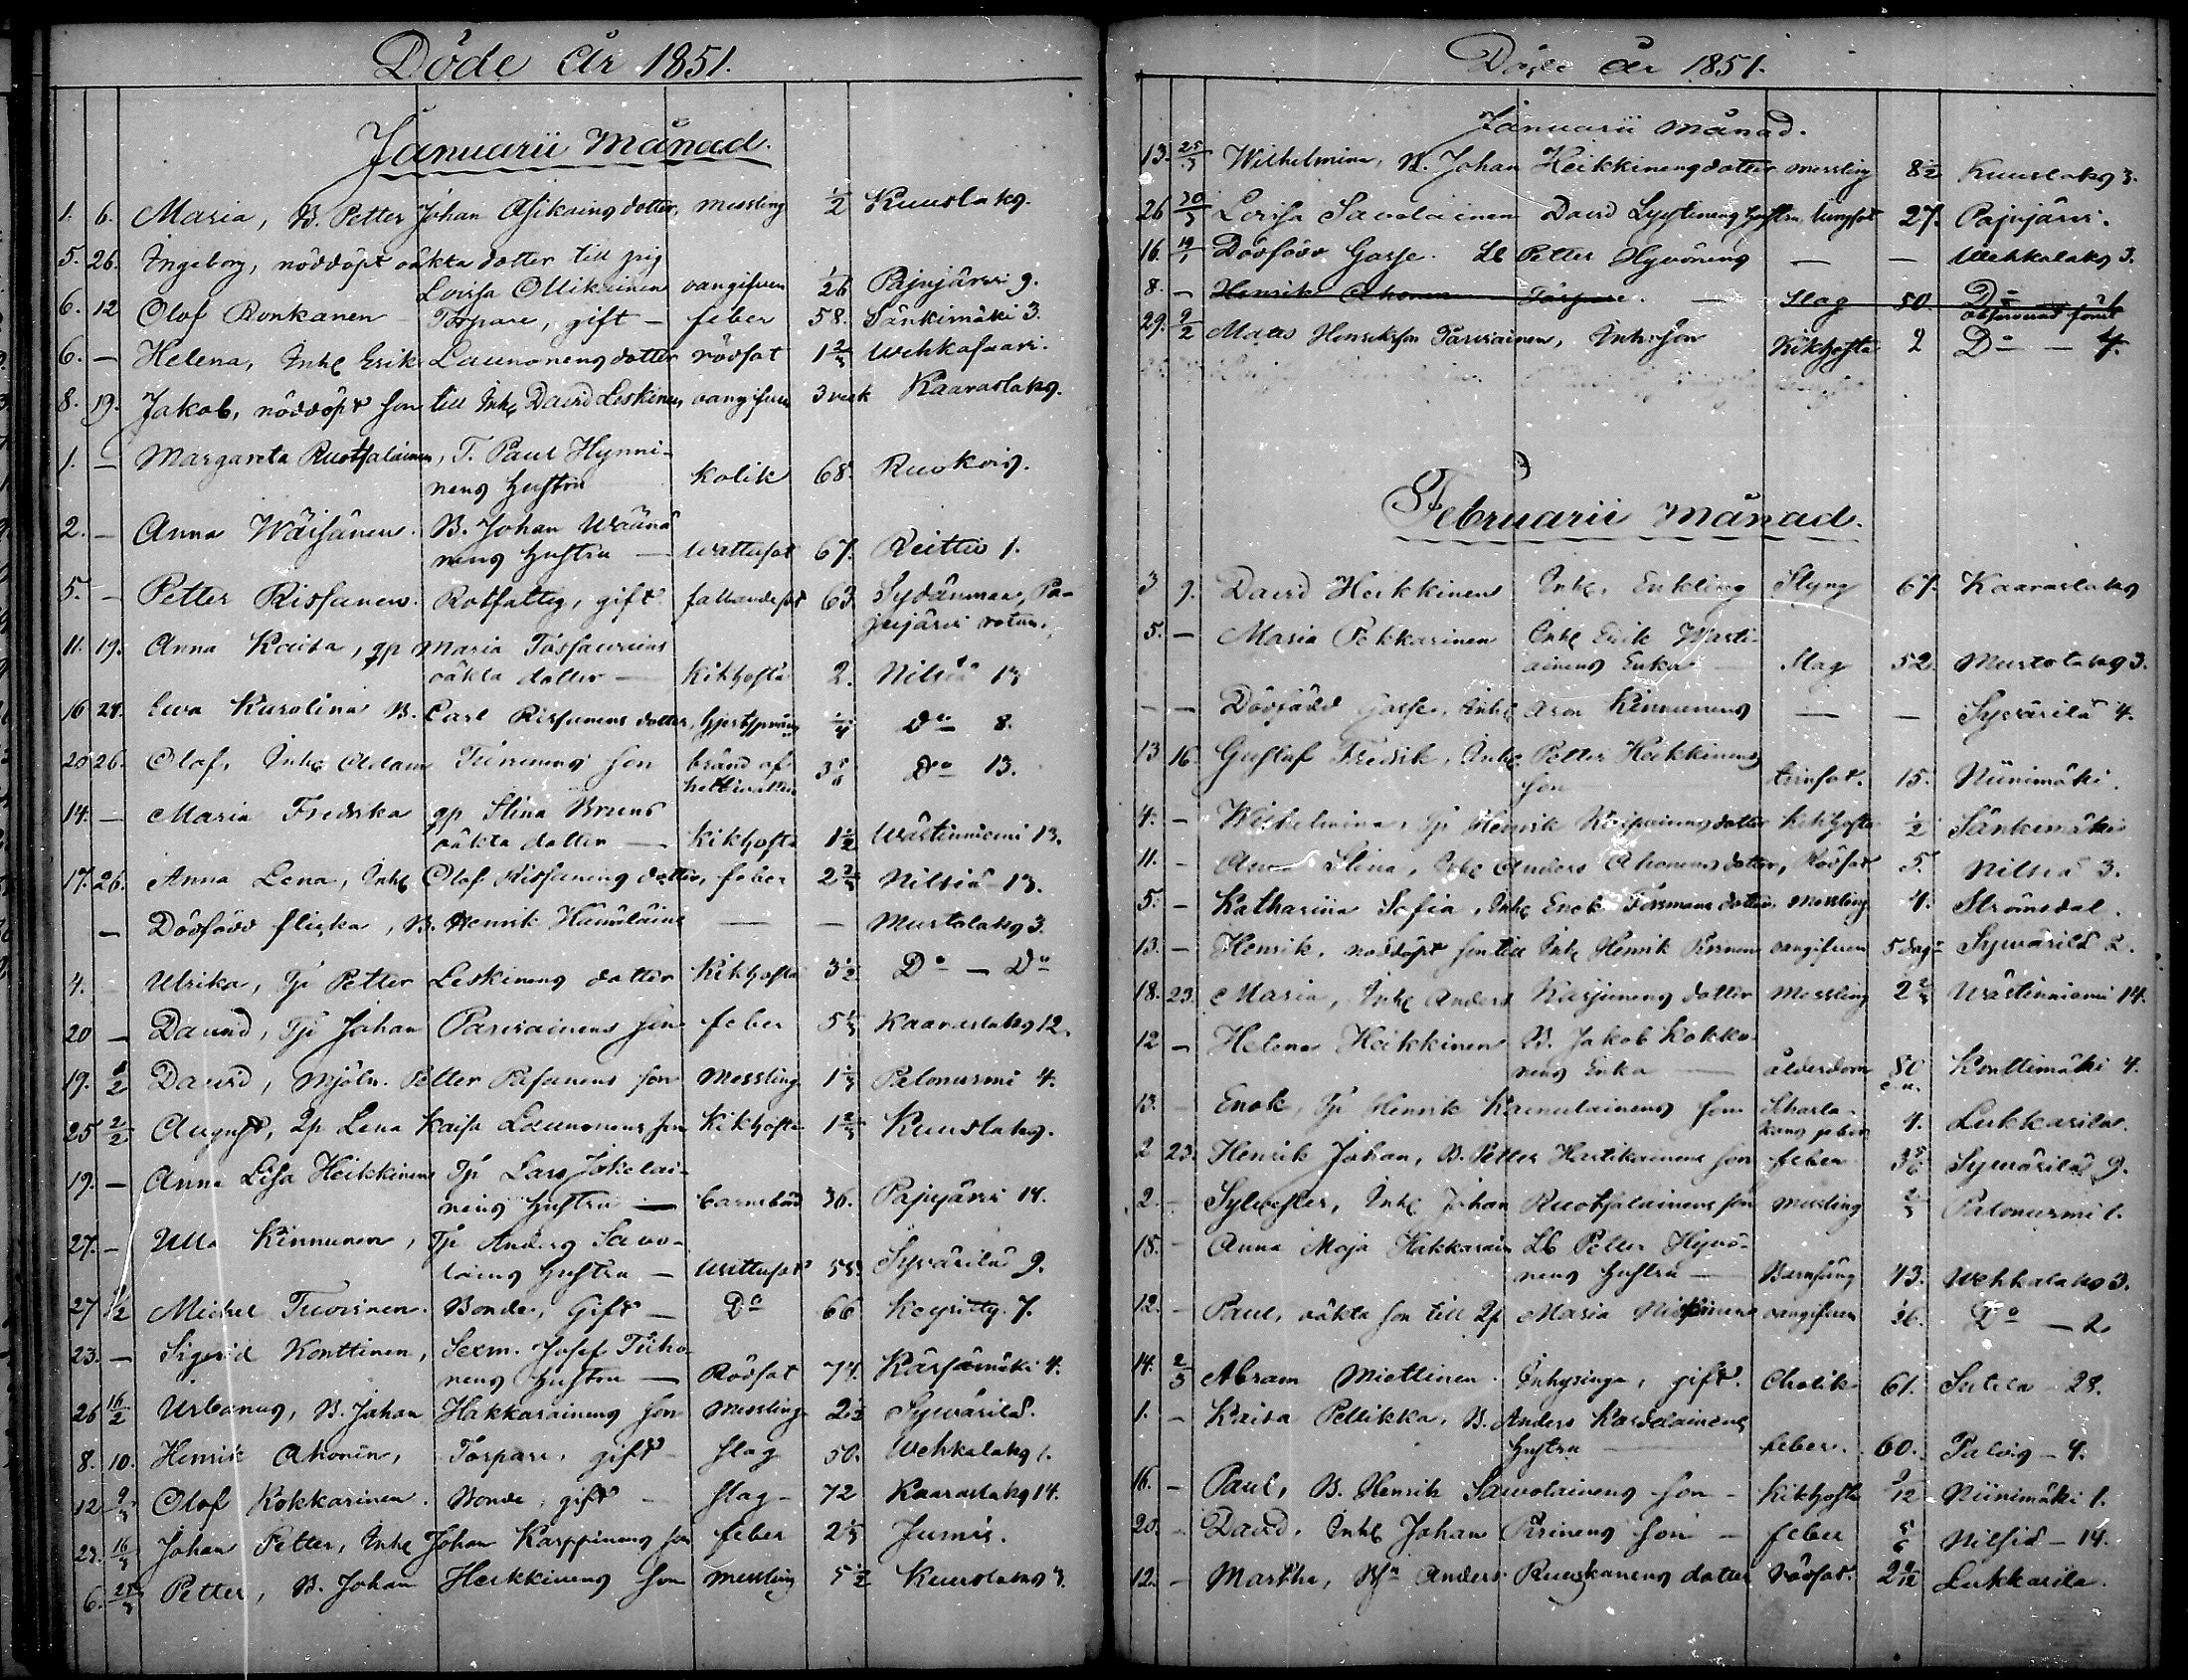 Döde år 1851.
Januarii Månad.
1. 6. Maria, B. Petter Johan Asikains dotter, messling 1/2 Kuuslaks.
5. 26. Ingeborg, nöddöpt oäkta dotter till pig
Lovisa Ollikainen oangifven 1/26 Pajujärvi 9.
6. 12 Olof Ronkanen – Torpare, gift – feber 58. Sänkimäki 3.
6. – Helena, Inhs Erik Launonens dotter rödsot 1 2/3 Wehkasaari.
8. 19. Jakob, nöddöpt son till Inhs David Leskinen, oangifven 3 veck Kaaraslaks.
1. – Margareta Ruotsalainen, T. Paul Hynni-
nens hustru Kolik 68. Ruokois.
2. – Anna Wäisänen. B. Johan Wäänä
nens hustru – Wattusot 67. Reittiö 1.
5. – Petter Rissanen. Rotfattig, gift. fallandesot 63. Sydänmaa, Pa-
jujärvi rotan.
11. 19. Anna Kaisa, qp Maria Tossavains
oäkta dotter – Kikhosta 2. Nilsiä 13
16 28. Ewa Karolina B. Carl Rissanens dotter, hjertsprång 1/4 Do 8.
20 26. Olof, Inhs Adam Tirinens son bränd af
hett vatten 3 Do 13.
14. – Maria Fredrika qp Stina Bruns
oäkta dotter – Kikhosta 1 1/2 Wästinniemi 13.
17. 26. Anna Lena, Inhs Olof Rissanens dotter, feber 2 2/3 Nilsiä 13.
– Dödfödd flicka, B. Henrik Hämäläins – – Murtolaks 3.
4. – Ulrika, Tp Petter Leskinens dotter Kikhosta 3 1/2 Do – Do
20 – David, Tp Johan Parviainens son feber 5 Kaaraslaks 12.
19. 1/2 David, mjöln. Petter Pasanens son Messling 1 1/3 Palonurmi 4.
25 2/2 August, qp Lena Kaisa Launonens son Kikhosta 1 2/3 Kuuslaks.
19. – Anna Lisa Heikkinen Tp Lars Jokolai-
nens hustru – barnbörd 36. Pajujärvi 14.
27. – Ulla Kinnunen, Tp Anders Savo-
lains hustru – Wattusot 58 Syvärilä 9.
27 1/2 Michel Tuovinen. Bonde, Gift – Do 66 Keyritty 7.
23. – Sigrid Konttinen, Sexm. Josef Tiiho
nens hustru – Rödsot 74. Kärsämäki 4.
26 16/2 Urbanus, B. Johan Hakkarainens son Messling 2 1/2 Syvärilä.
8. 10. Henrik Ahonen, Torpare, gift – slag 50. Wehkalaks 1.
12 9/3 Olof Kokkarinen. Bonde, gift – slag – 72 Kaaraslaks 14.
29. 16/3 Johan Petter, Inhs Johan Karppinens son feber 2 1/3 Jumis.
6. 25/3 Petter, B. Johan Heikkinens son messling 5 1/2 Kuuslaks 3.
Döde år 1851.
Januarii månad.
13. 25/3 Wilhelmina, B. Johan Heikkinens dotter messling 8 1/2 Kuuslaks 3.
26 30/3 Lovisa Savolainen David Lyytinens hustru lungsot 27. Pajujärvi.
16. 19/1 Dödfödd Gosse. Lb Petter Hyvönens – – Wehkalaks 3.
8. – Henrik Ahonen Torpare. – Slag 50. Do
observerad förut
29. 9/2 Mats Henriksson Parviainen, Inh. son Kikhosta 2 Do – 4.
Februarii månad.
3 9. David Heikkinen Inhs. Enkling Styng 67. Kaaraslaks
5. – Maria Pekkarinen Inhs Erik Marti-
ainens Enka – Slag 52. Murtolaks 3.
– – Dödfödd Gosse, Inhs Aron Kinnunens – – Syvärilä 4.
13 16. Gustaf Fredrik, Inhs Petter Heikkinens
son tvinsot. 15. Niinimäki.
4. – Wilhelmina, Tp Henrik dotter Kikhosta 1/2 Sänkimäki
11. – Anna Stina, Inhs Anders Ahonens dotter, Rödsot 5. Nilsiä 3.
5. – Katharina Sofia, Inhs Enok Forsmans dotter, Messling 4. Strömsdal.
13. – Henrik, nöddöpt son till Inhs Henrik Pirinen oangifven 5 dag. Syvärilä 2.
18. 23. Maria, Inhs Anders Karjunens dotter Messling 2 2/3 Wästinniemi 14.
12 – Helena Heikkinen B. Jakob Kokko
nens Enka – ålderdom 80 Konttimäki 4.
13. – Enok, Tp Henrik Kämäläinens son Scharla-
kans feber 4. Lukkarila.
2 23. Henrik Johan, B. Petter Hartikainens son feber 3 5/6 Syvärilä 9.
2. – Sylvester, Inhs Johan Ruotsalainens son messling 2/3 Palonurmi 1.
15. – Anna Maja Hakkarain Lb Petter Hyvö-
nens hustru – Barnsäng 43. Wehkalaks 3.
12. – Paul, oäkta son till qp Maria Niskanens oangifven 1/26. Do – 2
14. 2/3 Abram Miettinen. Inhysinge, gift. Cholik 61. Sutela 28.
1. – Kaisa Pellikka, B. Anders Kardelainens
hustru feber. 60. Palois – 4.
16. – Paul, B. Henrik Savolainens son – Kikhosta 9/12 Niinimäki 1.
20. – David. Inhs Johan Pirinens son – feber 5/6 Nilsiä – 14.
12. – Martha, Bs Anders Ruuskanens dotter rödsot. 2 Lukkarila.